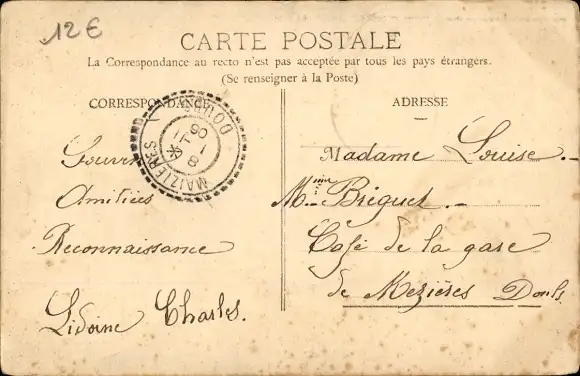 12€
CARTE POSTALE
La Correspondance au recto n'est pas acceptée par tous les pays étrangers.
(Se renseigner à la Poste)
CORRESPONDANCE
ADRESSE
MAIZIERES
DOUBS
Souven
Amitiées
Reconnaissance
Lidoine Charles.
Madame Louise.-
Mme Bréguet.-
Café de la gare
de Mezières Doubs